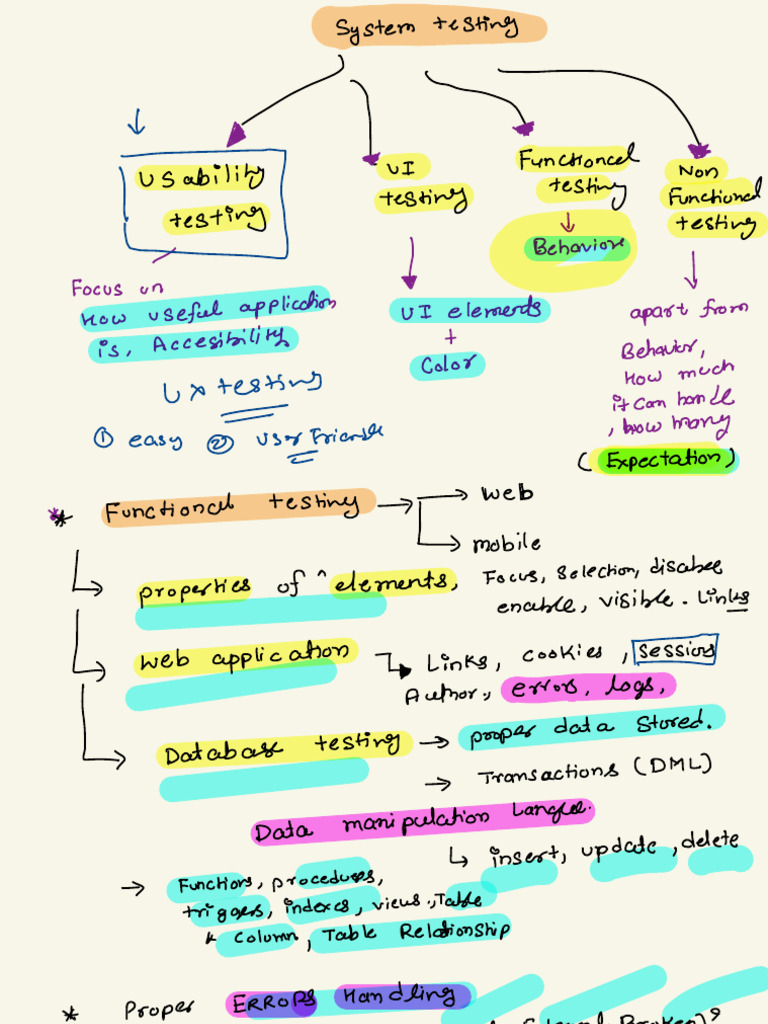 System testing
Usability
testing
UI
testing
Functional
testing
Non
Functional
testing
Behavior
Focus on
How useful application
is, Accesibility
UX testing
① easy ② User Friendle
UI elements
+
Color
apart from
Behavior,
How much
it can handle
, how many
(Expectation)
* Functional testing → web
mobile
properties of ^ elements, Focus, Selection, disable
enable, visible. Links
web application Links, cookies, Session
Author, errors, logs,
Database testing → proper data stored.
→ Transactions (DML)
Data manipulation Langue.
insert, update, delete
→ Functions, procedures,
triggers, indexes, views, Table
* Column, Table Relationship
* Proper ERRORS Handling